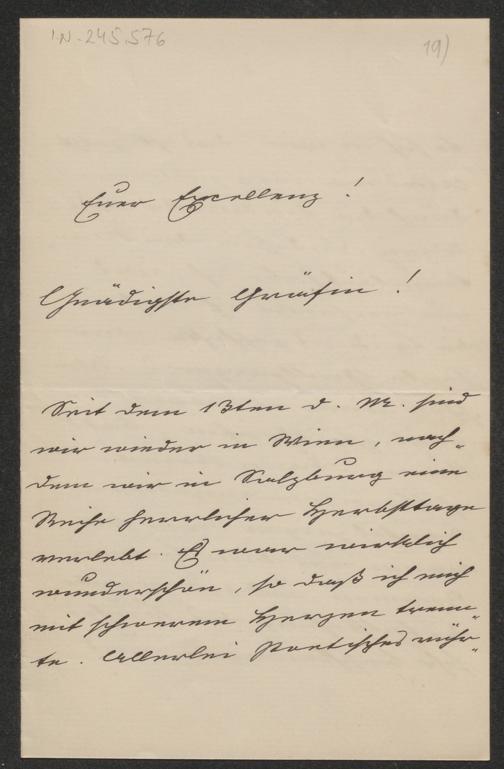 I.N. 245.576
19)
Euer Excellenz!
Gnädigste Gräfin!
Seit dem 13ten d. M. sind
wir wieder in Wien, nach-
dem wir in Salzburg eine
Reihe herrlicher Herbsttage
verlebt. Es war wirklich
wunderschön, so daß ich mich
mit schwerem Herzen trenn-
te. Allerlei Poetisches rühr-